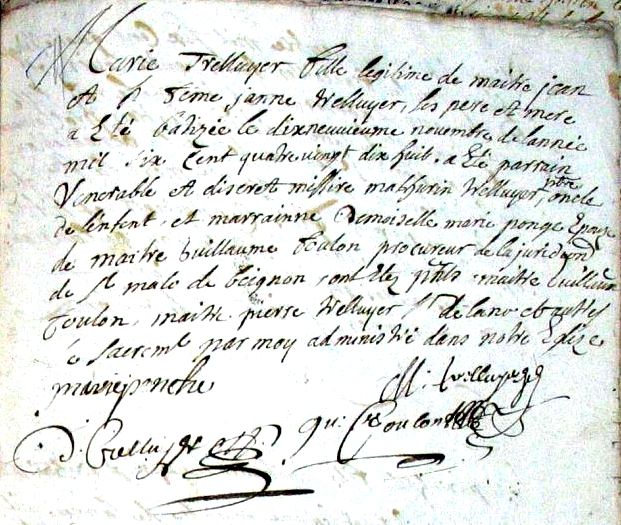 Marie Trelluyer fille legitime de maitre jean
et h deme janne trelluyer, les pere et mere
a Eté batizée le dixneuvieume novembre de lannée
mil six cent quatre vingt dix huit. a Eté parrain
Venerable et discret missire mathurin trelluyer ptre oncle
de lenfent, et marrainne Demoiselle marie ponge Epouse
de maitre Guillaume Coulon procureur de la
de st malo de beignon, ont Etez pnts maitre Guillaume
Coulon, maitre pierre trelluyer sr de et autres
le sacremt par moy administré dans notre Eglize
marie ponche
M: trelluyer
J. Trelluyer gu: Coulon